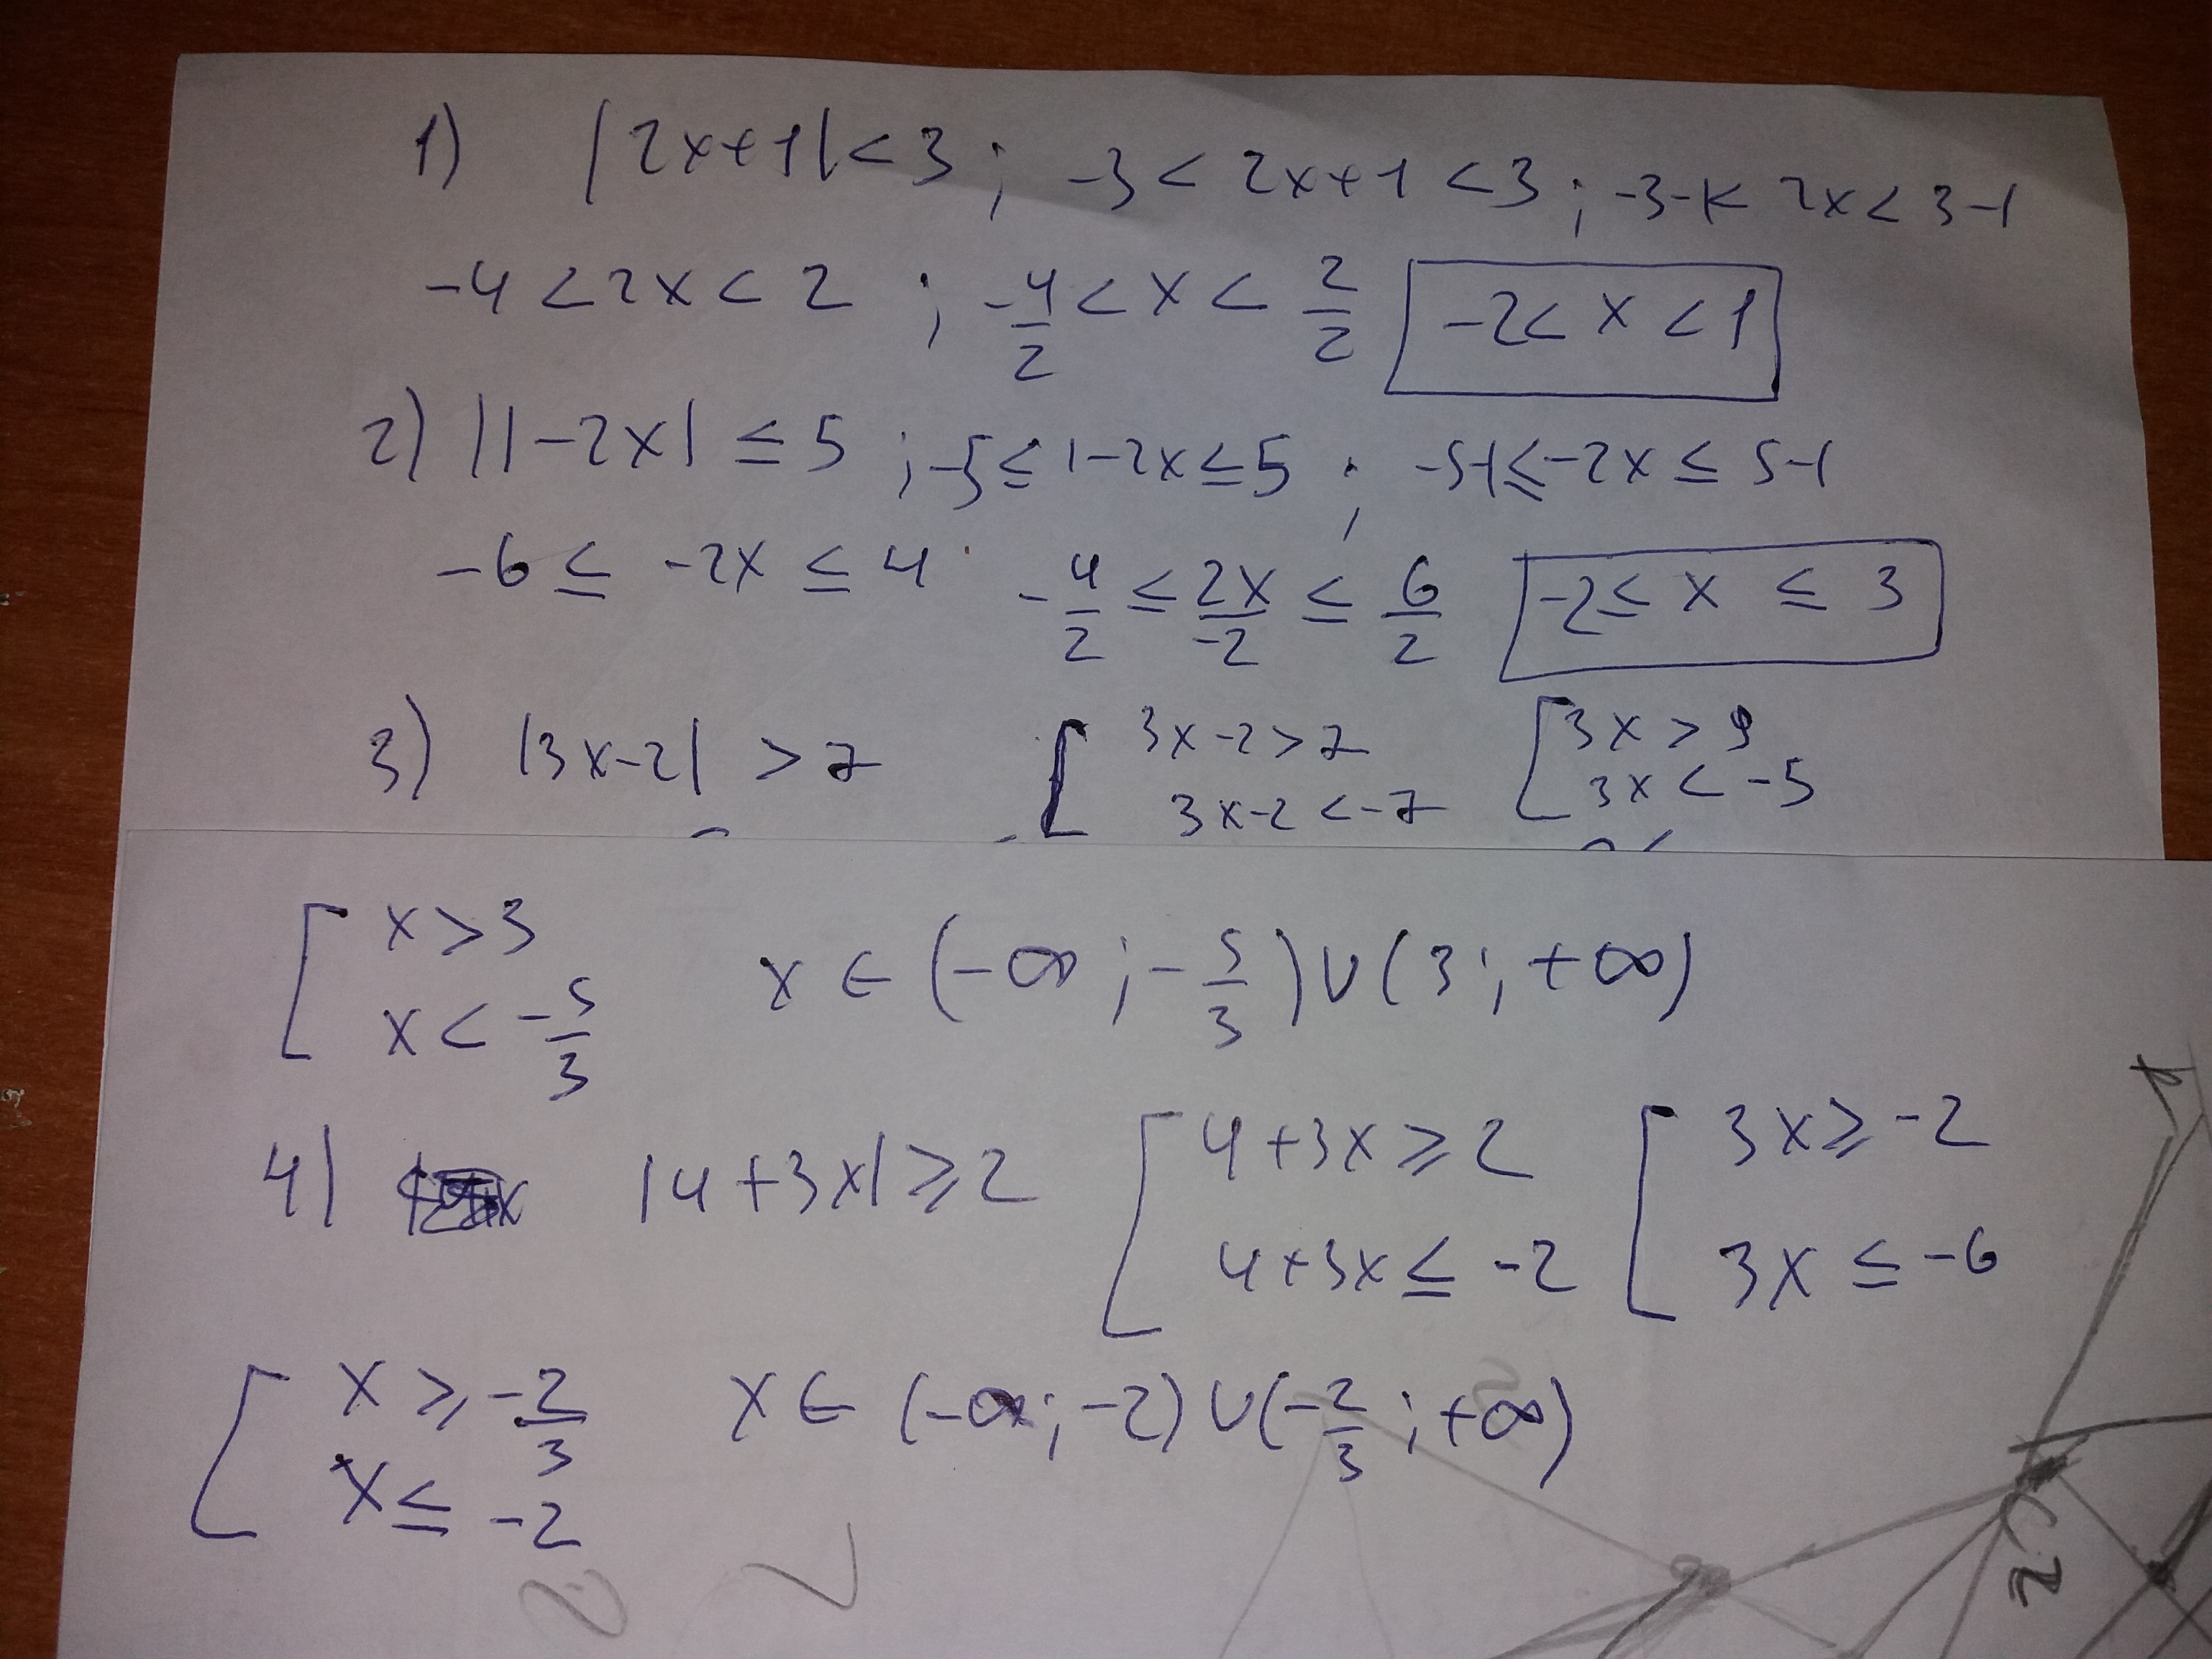 1) |2x+1|<3 ; -3 < 2x+1 <3 ; -3-1< 2x < 3-1
-4 < 2x < 2 ; -4/2 < x < 2/2 -2< x <1
2) |1-2x| ≤ 5 ; -5 ≤ 1-2x ≤ 5 ; -5-1 ≤ -2x ≤ 5-1
-6 ≤ -2x ≤ 4 -4/2 ≤ 2x/-2 ≤ 6/2 -2 ≤ x ≤ 3
3) |3x-2| >7 [ 3x-2>7 [ 3x > 9
3x-2 <-7 3x < -5
[ x>3 x ∈ (-∞ ; -5/3) ∪ (3 ; +∞)
x < -5/3
4) |4+3x| ⩾ 2 [ 4+3x ⩾ 2 [ 3x ⩾ -2
4+3x ≤ -2 3x ≤ -6
[ x ⩾ -2/3 x ∈ (-∞ ; -2) ∪ (-2/3 ; +∞)
x ≤ -2